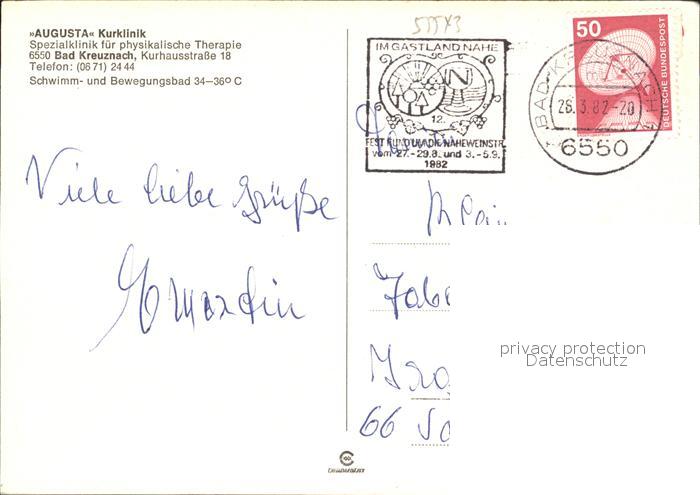 »AUGUSTA« Kurklinik
Spezialklinik für physikalische Therapie
6550 Bad Kreuznach, Kurhausstraße 18
Telefon: (06 71) 24 44
Schwimm- und Bewegungsbad 34–36° C
Viele liebe Grüße
55543
IM GASTLAND NAHE
N
12.
FEST RUND UM DIE NAHEWEINSTR.
vom 27.-29.8. und 3.-5.9.
1982
50
DEUTSCHE BUNDESPOST
BAD KREUZNACH
26.3.82-20
6550
66
privacy protection
Datenschutz